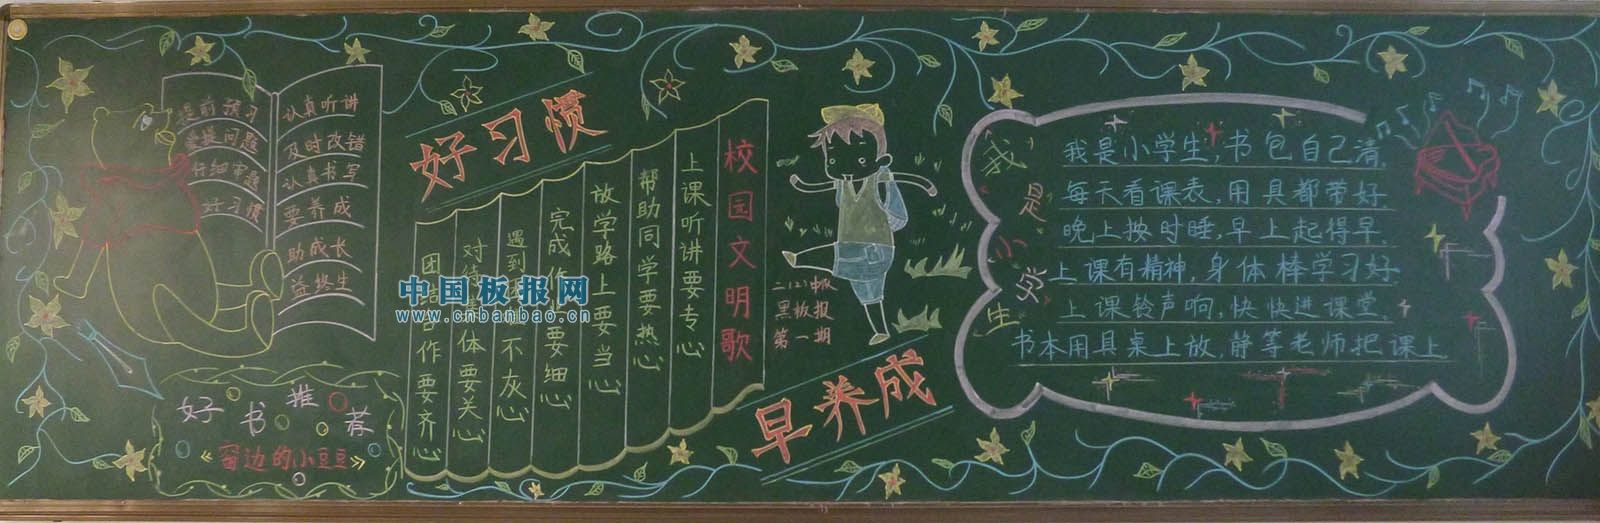 提前预习
爱提问题
仔细审题
好习惯
认真听讲
及时改错
认真书写
要养成
助成长
益终生
好书推荐
《窗边的小豆豆》
好习惯
早养成
校园文明歌
上课听讲要专心
帮助同学要热心
放学路上要当心
完成作业要细心
遇到不灰心
对待体要关心
团结合作要齐心
二(2)中
黑板报
第一期
中国板报网
www.cnbanbao.cn
我是小学生
我是小学生,书包自己清.
每天看课表,用具都带好.
晚上按时睡,早上起得早.
上课有精神,身体棒学习好
上课铃声响,快快进课堂.
书本用具桌上放,静等老师把课上